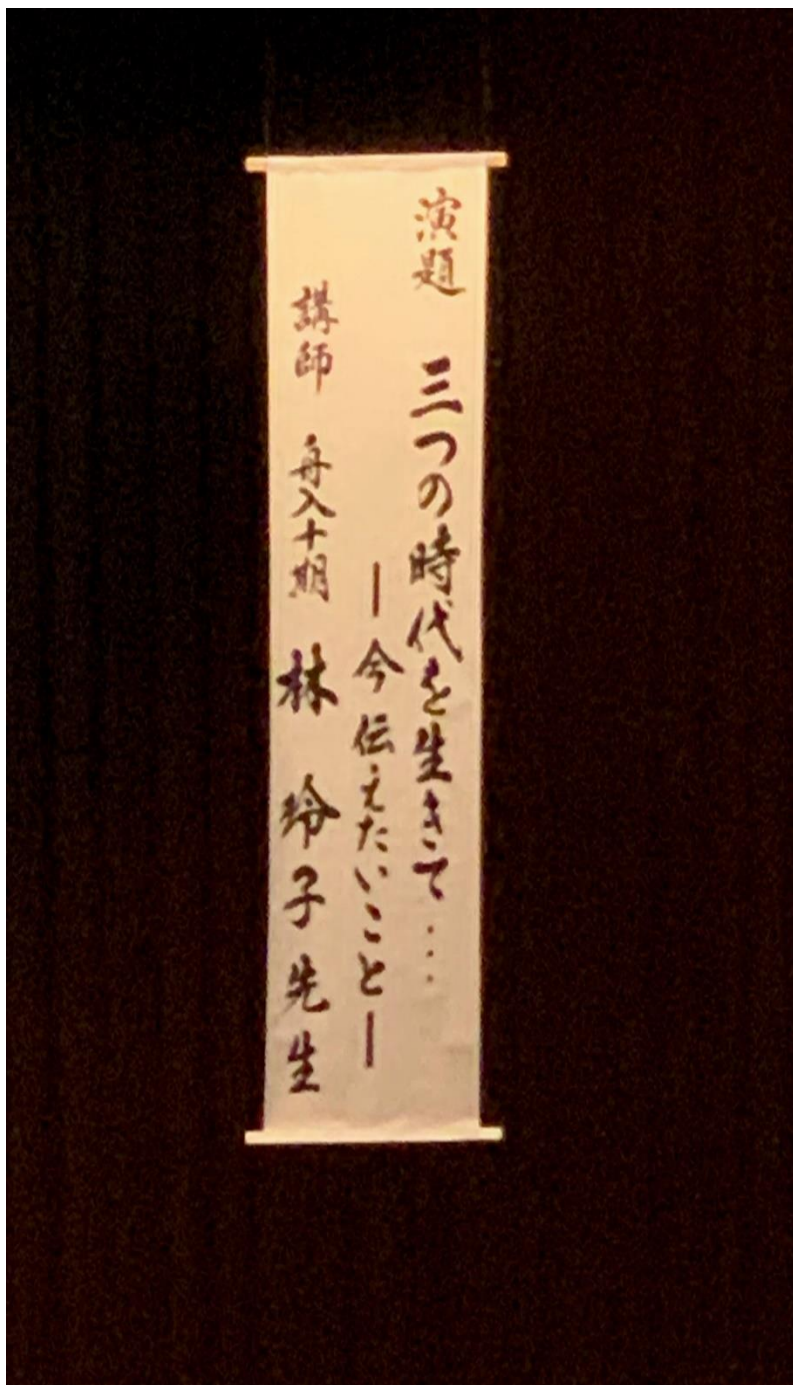 演題 三つの時代を生きて・・・
―今伝えたいこと―
講師 舟入十期 林 玲子先生